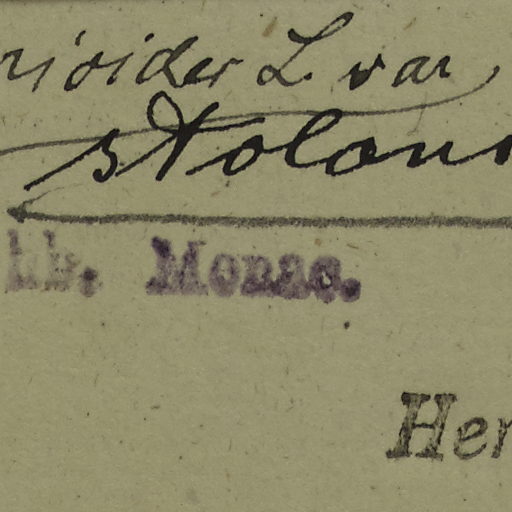 rioides L. var
stoloni
hb. Monac.
Her